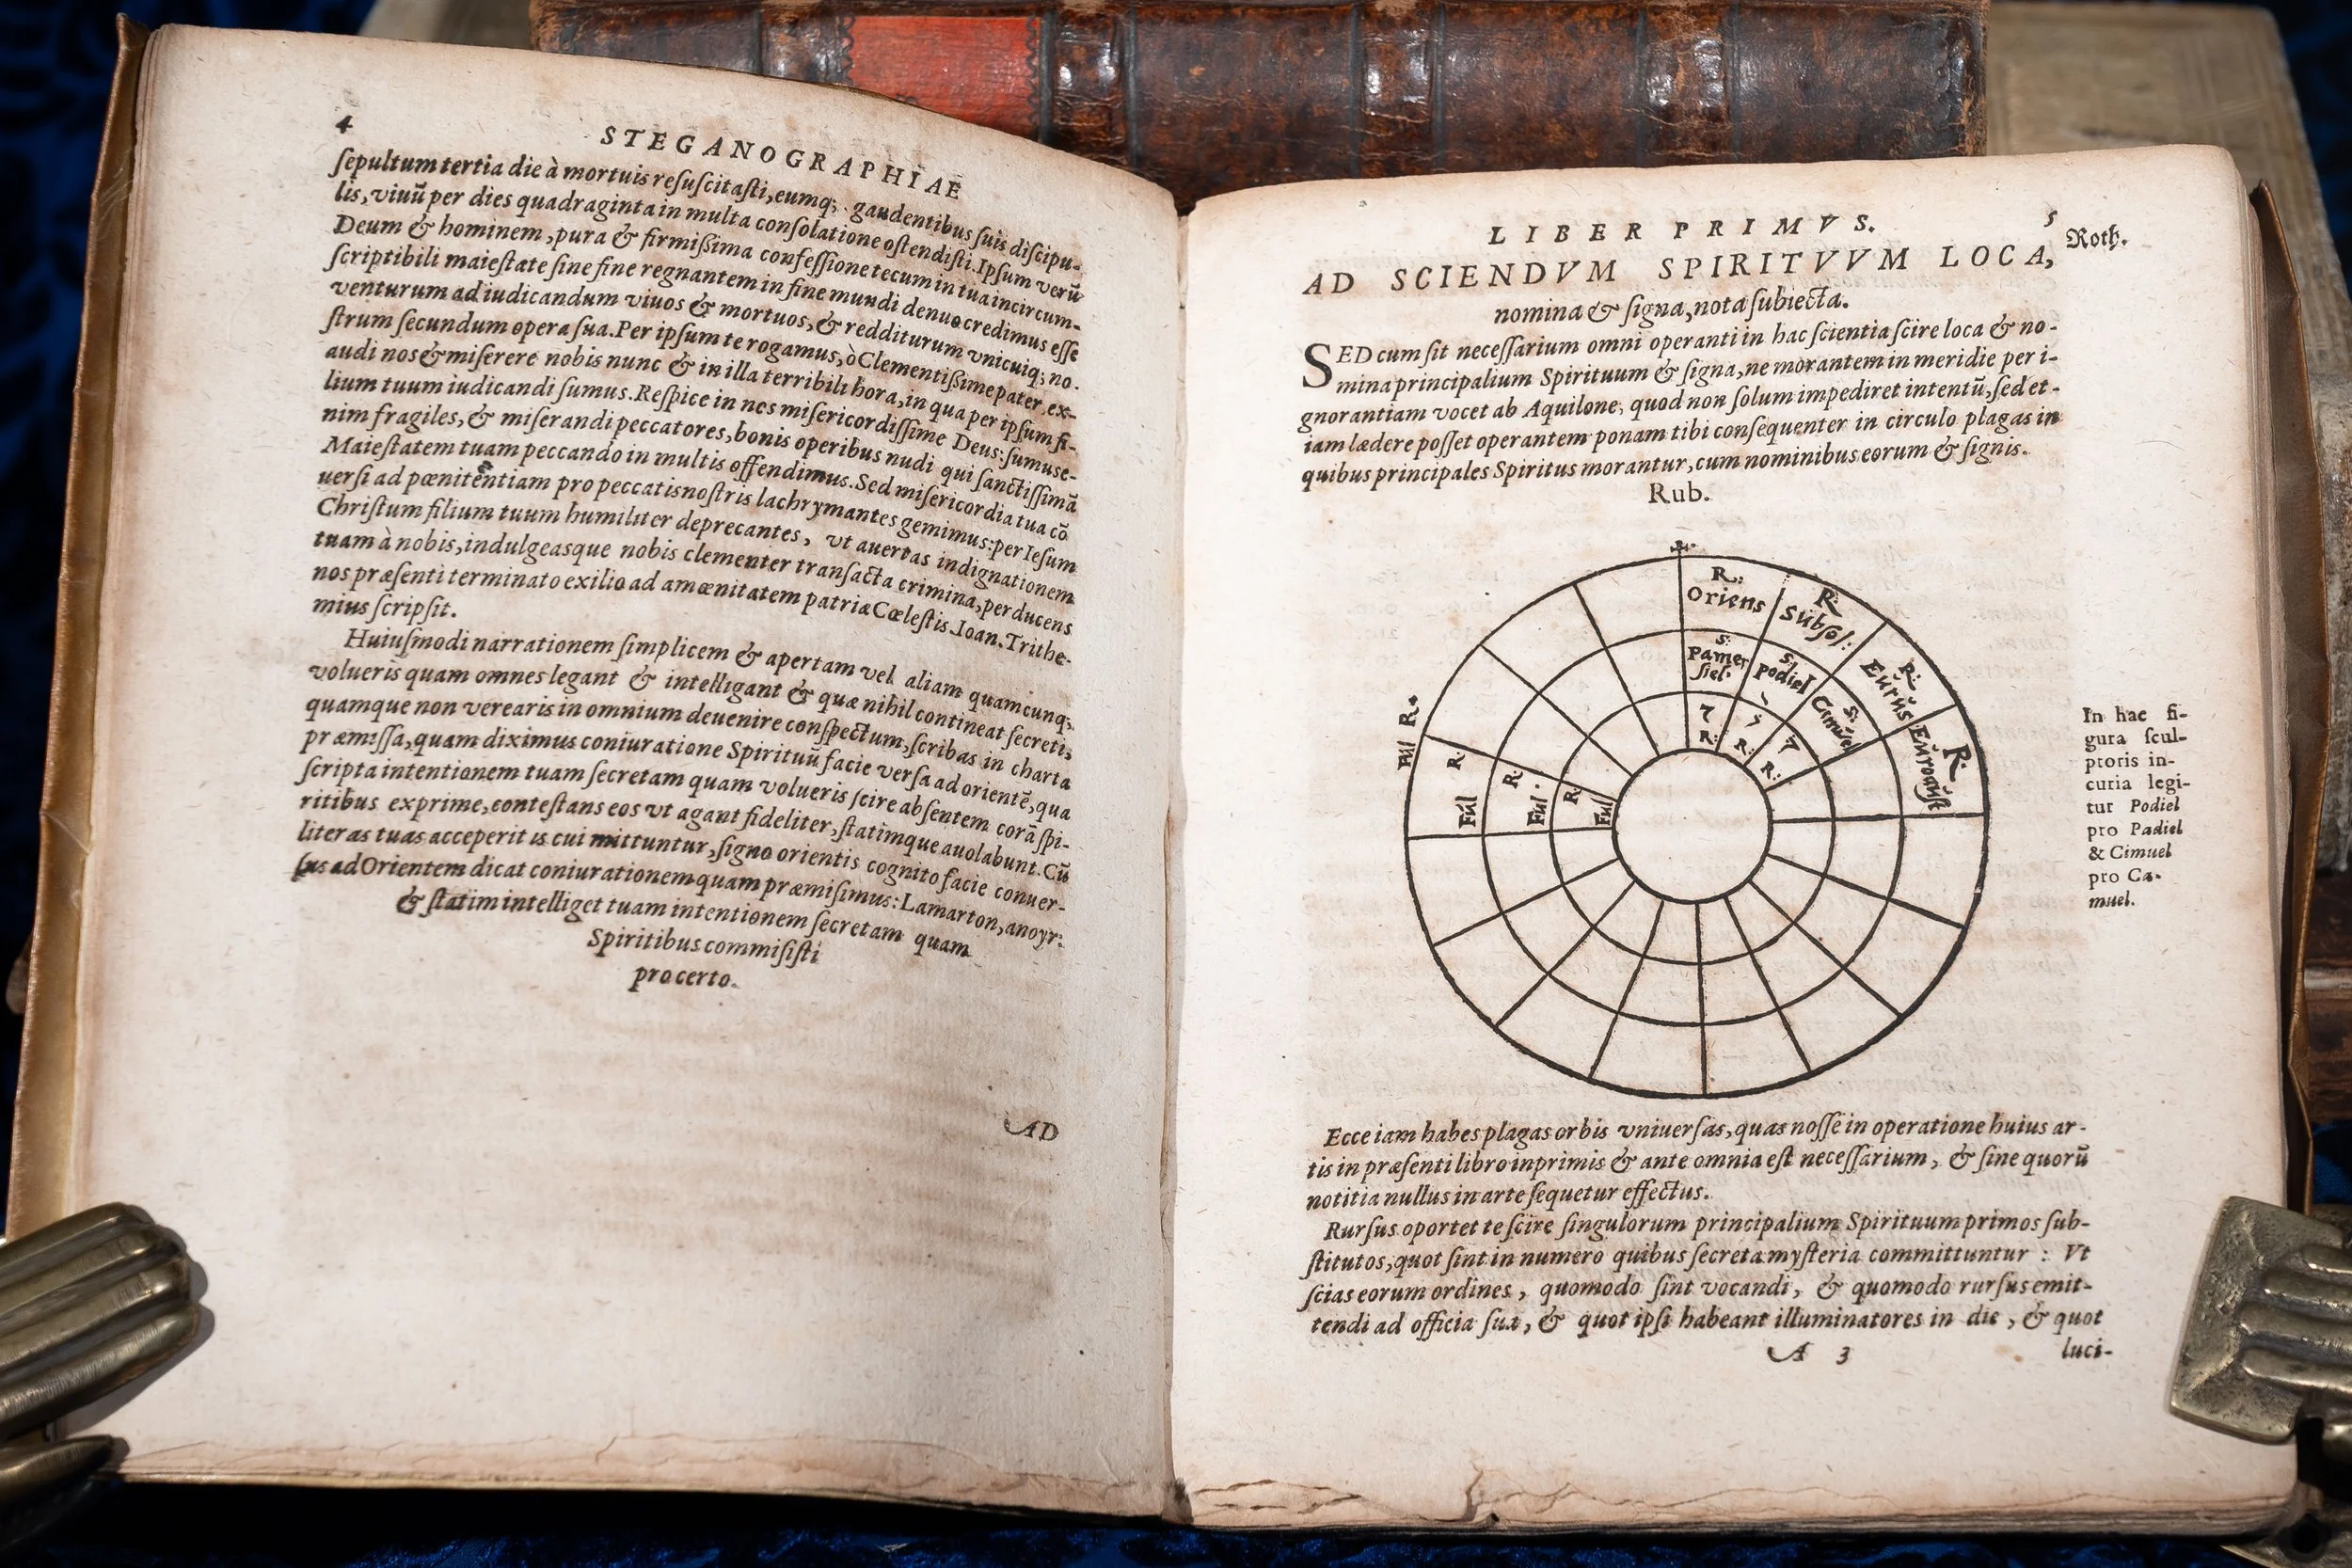 4
STEGANOGRAPHIAE
ſepultum tertia die à mortuis reſuſcitaſti, eumq; gaudentibus ſuis diſcipu-
lis, viuū per dies quadraginta in multa conſolatione oſtendiſti. Ipſum verū
Deum & hominem, pura & firmiſsima confeſſione tecum in tua incircum-
ſcriptibili maieſtate ſine fine regnantem in fine mundi denuo credimus eſſe
venturum ad iudicandum viuos & mortuos, & redditurum vnicuiq; no-
ſtrum ſecundum opera ſua. Per ipſum te rogamus, ò Clementiſsime pater, ex-
audi nos & miſerere nobis nunc & in illa terribili hora, in qua per ipſum fi-
lium tuum iudicandi ſumus. Reſpice in nos miſericordiſſime Deus: ſumus e-
nim fragiles, & miſerandi peccatores, bonis operibus nudi qui ſanctiſſimā
Maieſtatem tuam peccando in multis offendimus. Sed miſericordia tua cō
uerſi ad pœnitentiam pro peccatis noſtris lachrymantes gemimus: per Ieſum
Chriſtum filium tuum humiliter deprecantes, vt auertas indignationem
tuam à nobis, indulgeasque nobis clementer tranſacta crimina, perducens
nos præſenti terminato exilio ad amœnitatem patriæ Cœleſtis. Ioan. Trithe-
mius ſcripſit.
Huiuſmodi narrationem ſimplicem & apertam vel aliam quamcunq;
volueris quam omnes legant & intelligant & quæ nihil contineat ſecreti,
quamque non verearis in omnium deuenire conſpectum, ſcribas in charta
præmiſſa, quam diximus coniuratione Spirituū facie verſa ad orientē, qua
ſcripta intentionem tuam ſecretam quam volueris ſcire abſentem corā ſpi-
ritibus exprime, conteſtans eos vt agant fideliter, ſtatimque auolabunt. Cū
literas tuas acceperit is cui mittuntur, ſigno orientis cognito facie conuer-
ſus ad Orientem dicat coniurationem quam præmiſimus: Lamarton, anoyr:
& ſtatim intelliget tuam intentionem ſecretam quam
Spiritibus commiſiſti
pro certo.
AD
LIBER PRIMVS.
5
AD SCIENDVM SPIRITVVM LOCA,
Roth.
nomina & ſigna, nota ſubiecta.
SED cum ſit neceſſarium omni operanti in hac ſcientia ſcire loca & no-
mina principalium Spirituum & ſigna, ne morantem in meridie per i-
gnorantiam vocet ab Aquilone, quod non ſolum impediret intentū, ſed et-
iam lædere poſſet operantem ponam tibi conſequenter in circulo plagas in
quibus principales Spiritus morantur, cum nominibus eorum & ſignis.
Rub.
R:
Oriens
R:
Subſol:
R:
Eurus
R:
Euroauſt
S:
Pamer
ſiel.
S:
Podiel
S:
Cimuel
R:
R:
R:
Ful R.
Ful R.
Ful. R.
Ful R.
In hac fi-
gura ſcul-
ptoris in-
curia legi-
tur Podiel
pro Padiel
& Cimuel
pro Ca-
muel.
Ecce iam habes plagas orbis vniuerſas, quas noſſe in operatione huius ar-
tis in præſenti libro inprimis & ante omnia eſt neceſſarium, & ſine quorū
notitia nullus in arte ſequetur effectus.
Rurſus oportet te ſcire ſingulorum principalium Spirituum primos ſub-
ſtitutos, quot ſint in numero quibus ſecreta myſteria committuntur: Vt
ſcias eorum ordines, quomodo ſint vocandi, & quomodo rurſus emit-
tendi ad officia ſua, & quot ipſi habeant illuminatores in die, & quot
A 3
luci-